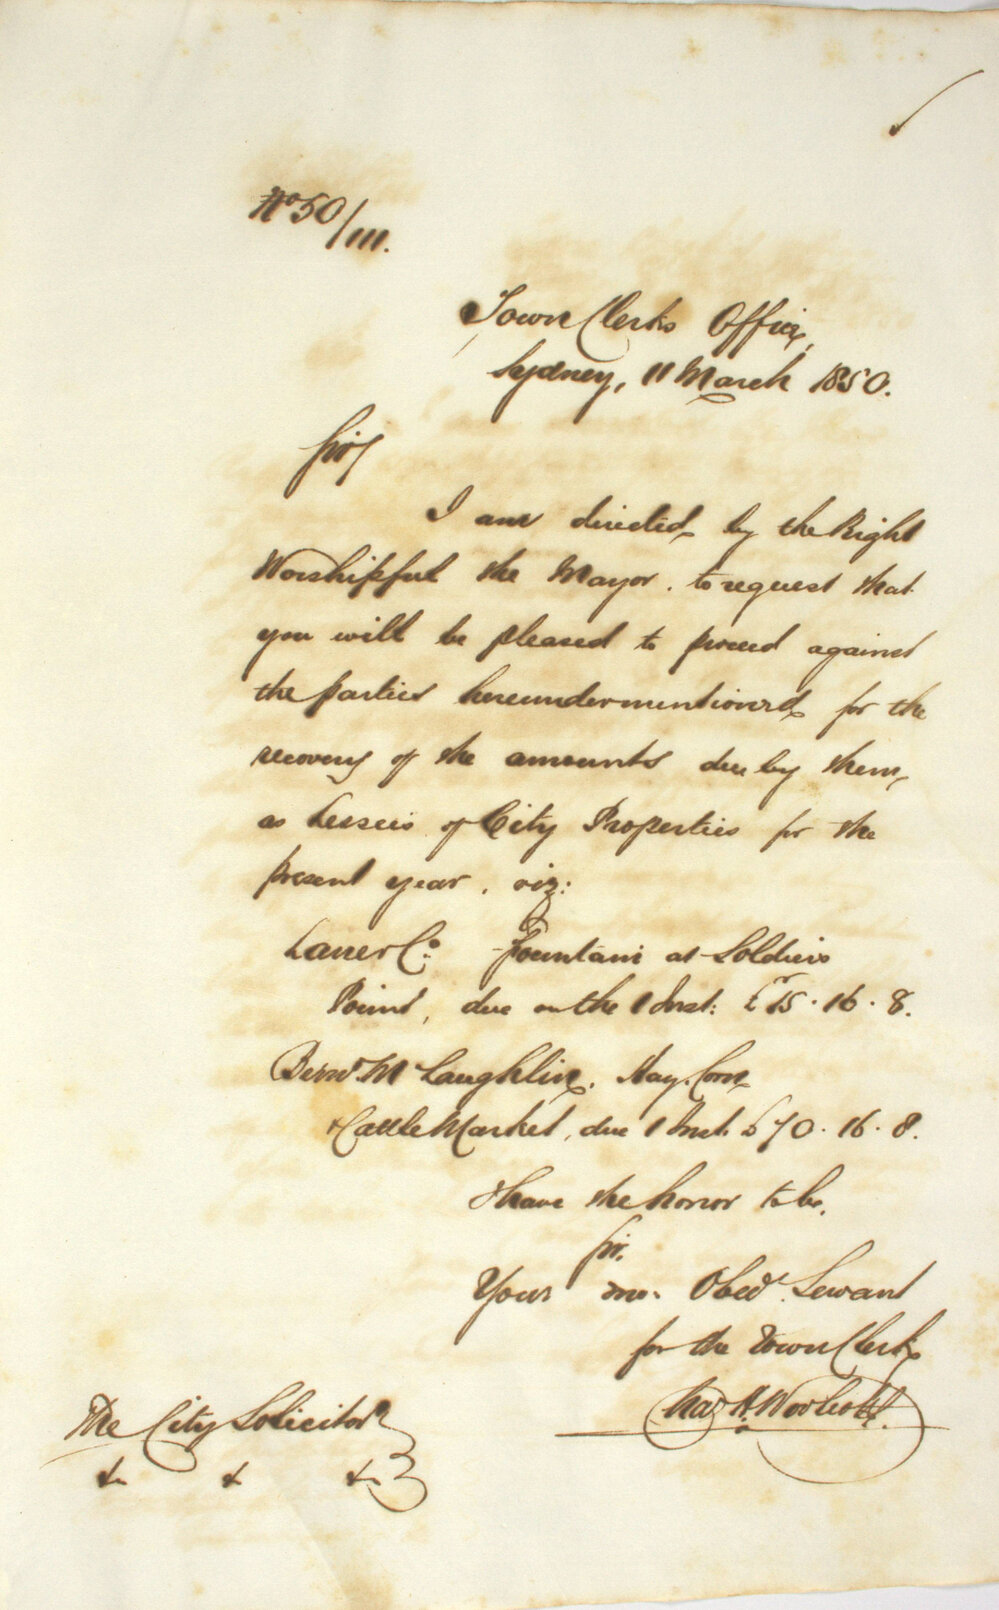 No 50/111.
Town Clerks Office,
Sydney, 11 March 1850.
Sir,
I am directed by the Right
Worshipful the Mayor. to request that
you will be pleased to proceed against
the parties hereundermentioned for the
recovery of the amounts due by them,
as Lessees of City Properties for the
present year. viz:
Co. Fountain at Soldiers
Point, due on the 1 Inst: £ 15. 16. 8.
Bernd. McLaughlin. Hay. Corn
& Cattle Market, due 1 Inst. £ 70. 16. 8.
I have the honor to be,
Sir.
Your mo. Obedt. Servant
for the Town Clerk
Chas H. Woolcott.
The City Solicitor
&c & &c